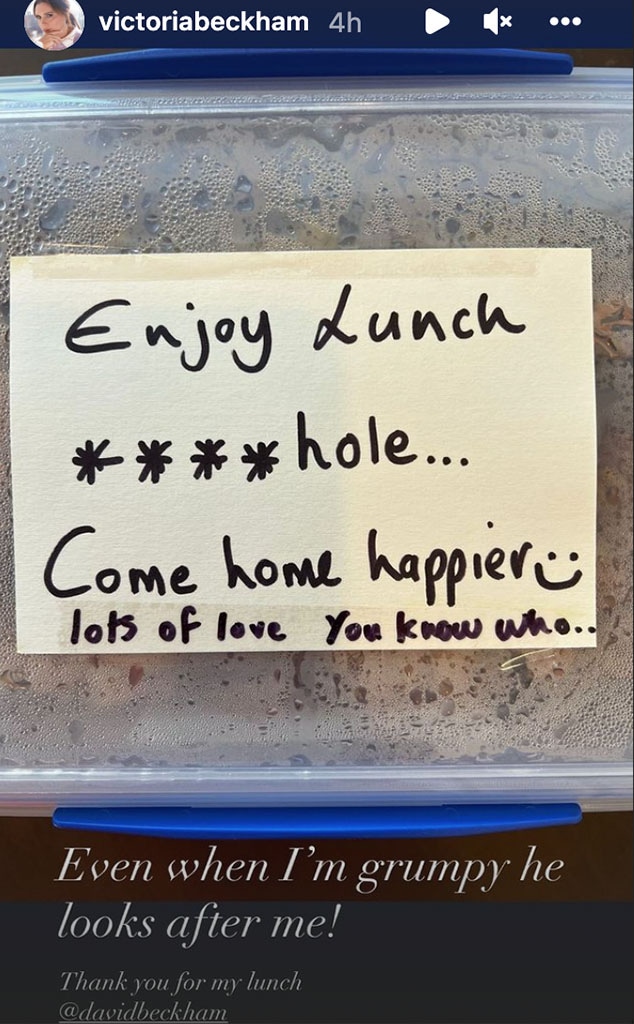 victoriabeckham 4h
Enjoy Lunch
****hole...
Come home happier
lots of love You know who..
Even when I'm grumpy he
looks after me!
Thank you for my lunch
@davidbeckham